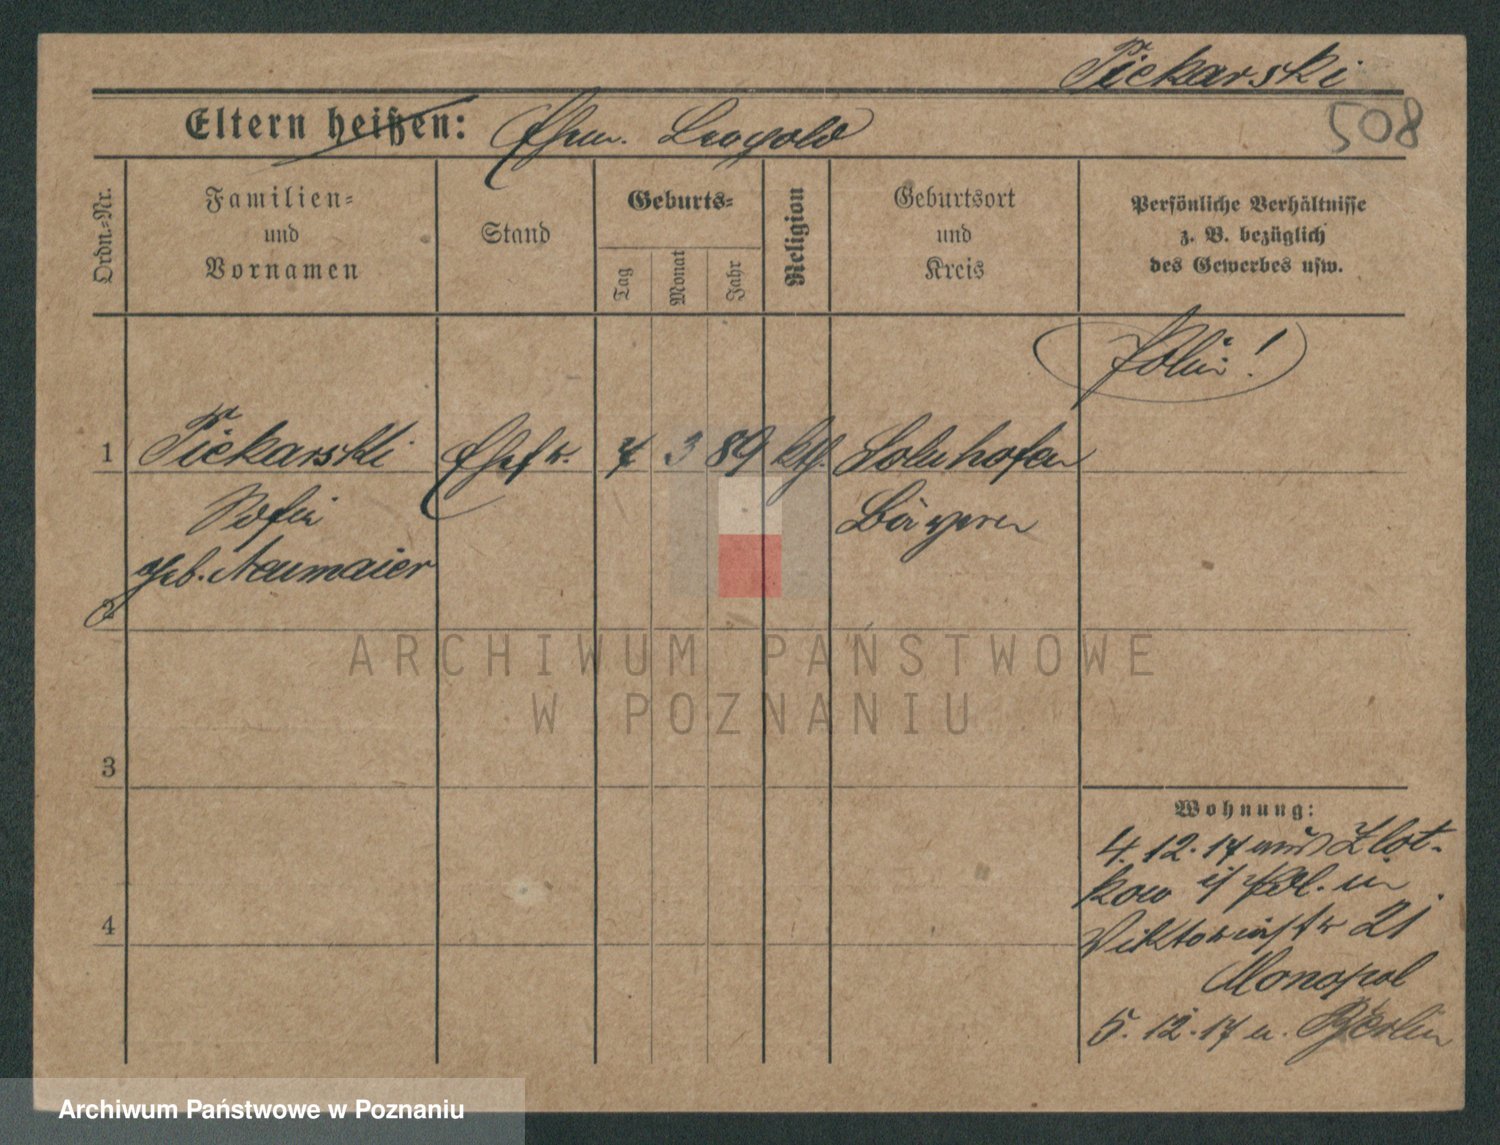 Piekarski
508
Eltern heißen: Ehem. Leopold
Ordn.-Nr.
Familien-
und
Vornamen
Stand
Geburts-
Tag
Monat
Jahr
Religion
Geburtsort
und
Kreis
Persönliche Verhältnisse
z. B. bezüglich
des Gewerbes usw.
Polin!
1 Piekarski Ehefr. 7 3 89 kth. Solnhofen
Sofie Bayern
geb. Neumaier
2
ARCHIWUM PAŃSTWOWE
W POZNANIU
3
4
Wohnung:
4. 12. 17 aus Zlot-
kow i/ Pol. in
Viktoriastr 21
Monopol
5. 12. 17 n. Berlin
Archiwum Państwowe w Poznaniu